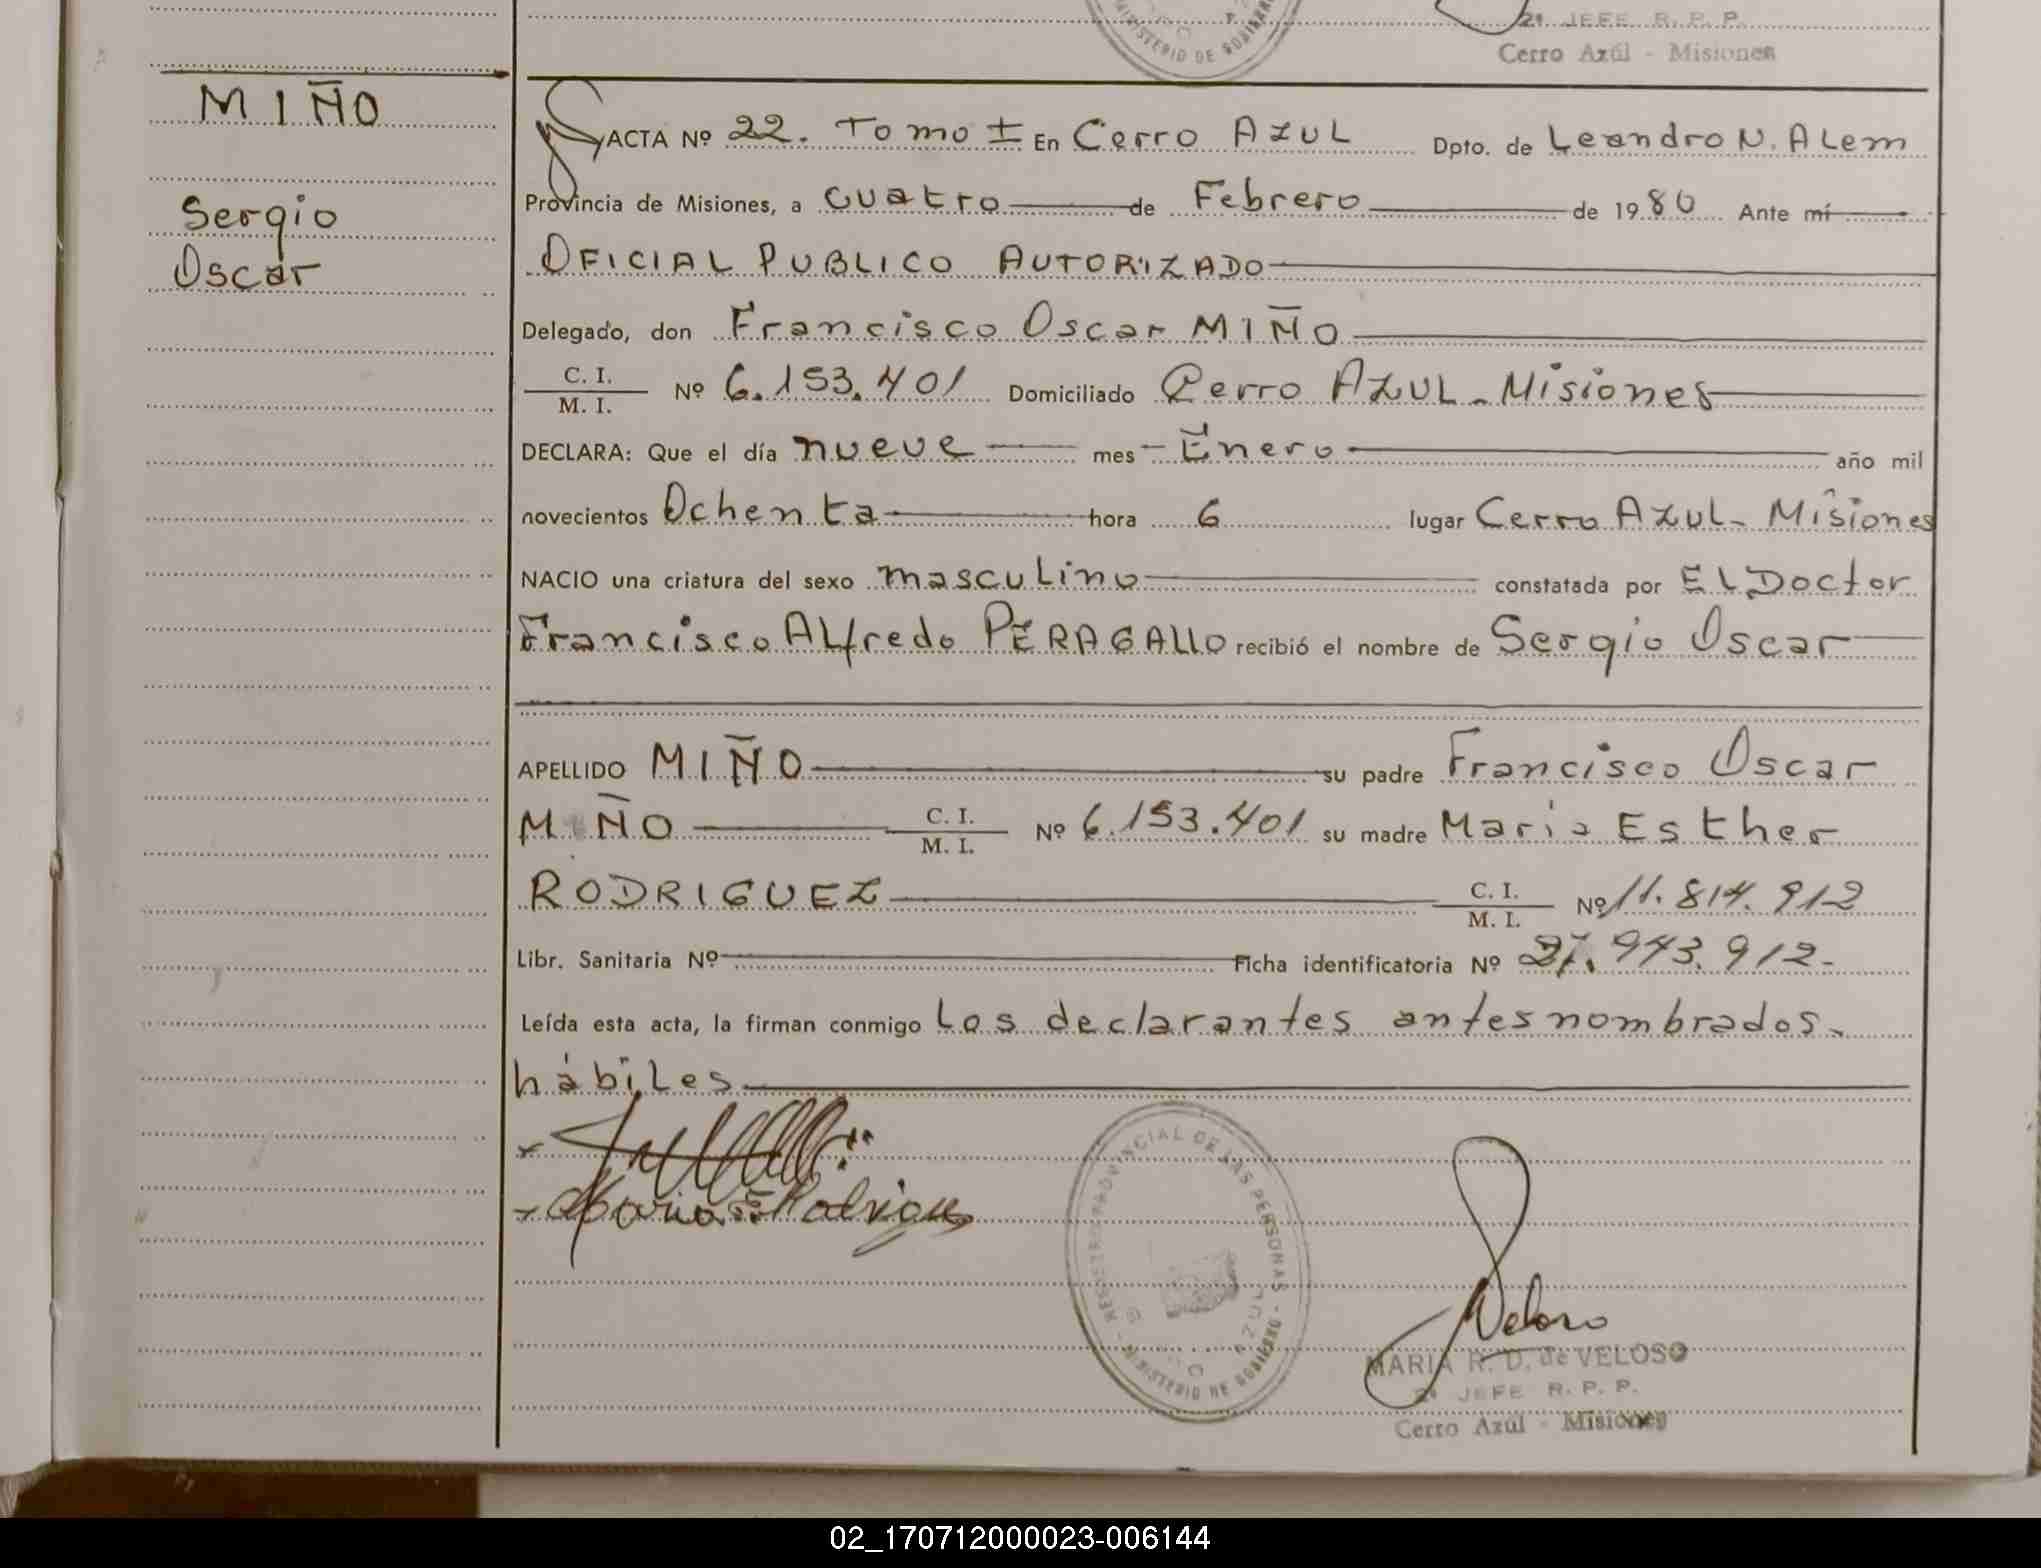 MINISTERIO DE GOBIERNO
2º JEFE R. P. P.
Cerro Azúl - Misiones
MIÑO
Sergio
Oscar
ACTA Nº 22. Tomo I En Cerro AZUL Dpto. de Leandro N. ALem
Provincia de Misiones, a cuatro de Febrero de 1980 Ante mí
OFICIAL PUBLICO AUTORIZADO
Delegado, don Francisco Oscar MIÑO
C. I.
M. I. Nº 6.153.401 Domiciliado Cerro AZUL - Misiones
DECLARA: Que el día nueve mes Enero año mil
novecientos Ochenta hora 6 lugar Cerro AZUL - Misiones
NACIO una criatura del sexo mascuLino constatada por EL Doctor
Francisco ALfredo PERAGALLO recibió el nombre de Sergio Oscar
APELLIDO MIÑO su padre Francisco Oscar
MIÑO C. I.
M. I. Nº 6.153.401 su madre Maria Esther
RODRIGUEZ C. I.
M. I. Nº 11.814.912
Libr. Sanitaria Nº Ficha identificatoria Nº 27.943.912-
Leída esta acta, la firman conmigo Los declarantes antes nombrados.
hábiles
Maria E Rodrigues
REGISTRO PROVINCIAL DE LAS PERSONAS - MINISTERIO DE GOBIERNO -
AZUL
Veloso
MARIA R. D. de VELOSO
2º JEFE R. P. P.
Cerro Azúl - Misiones
02_170712000023-006144